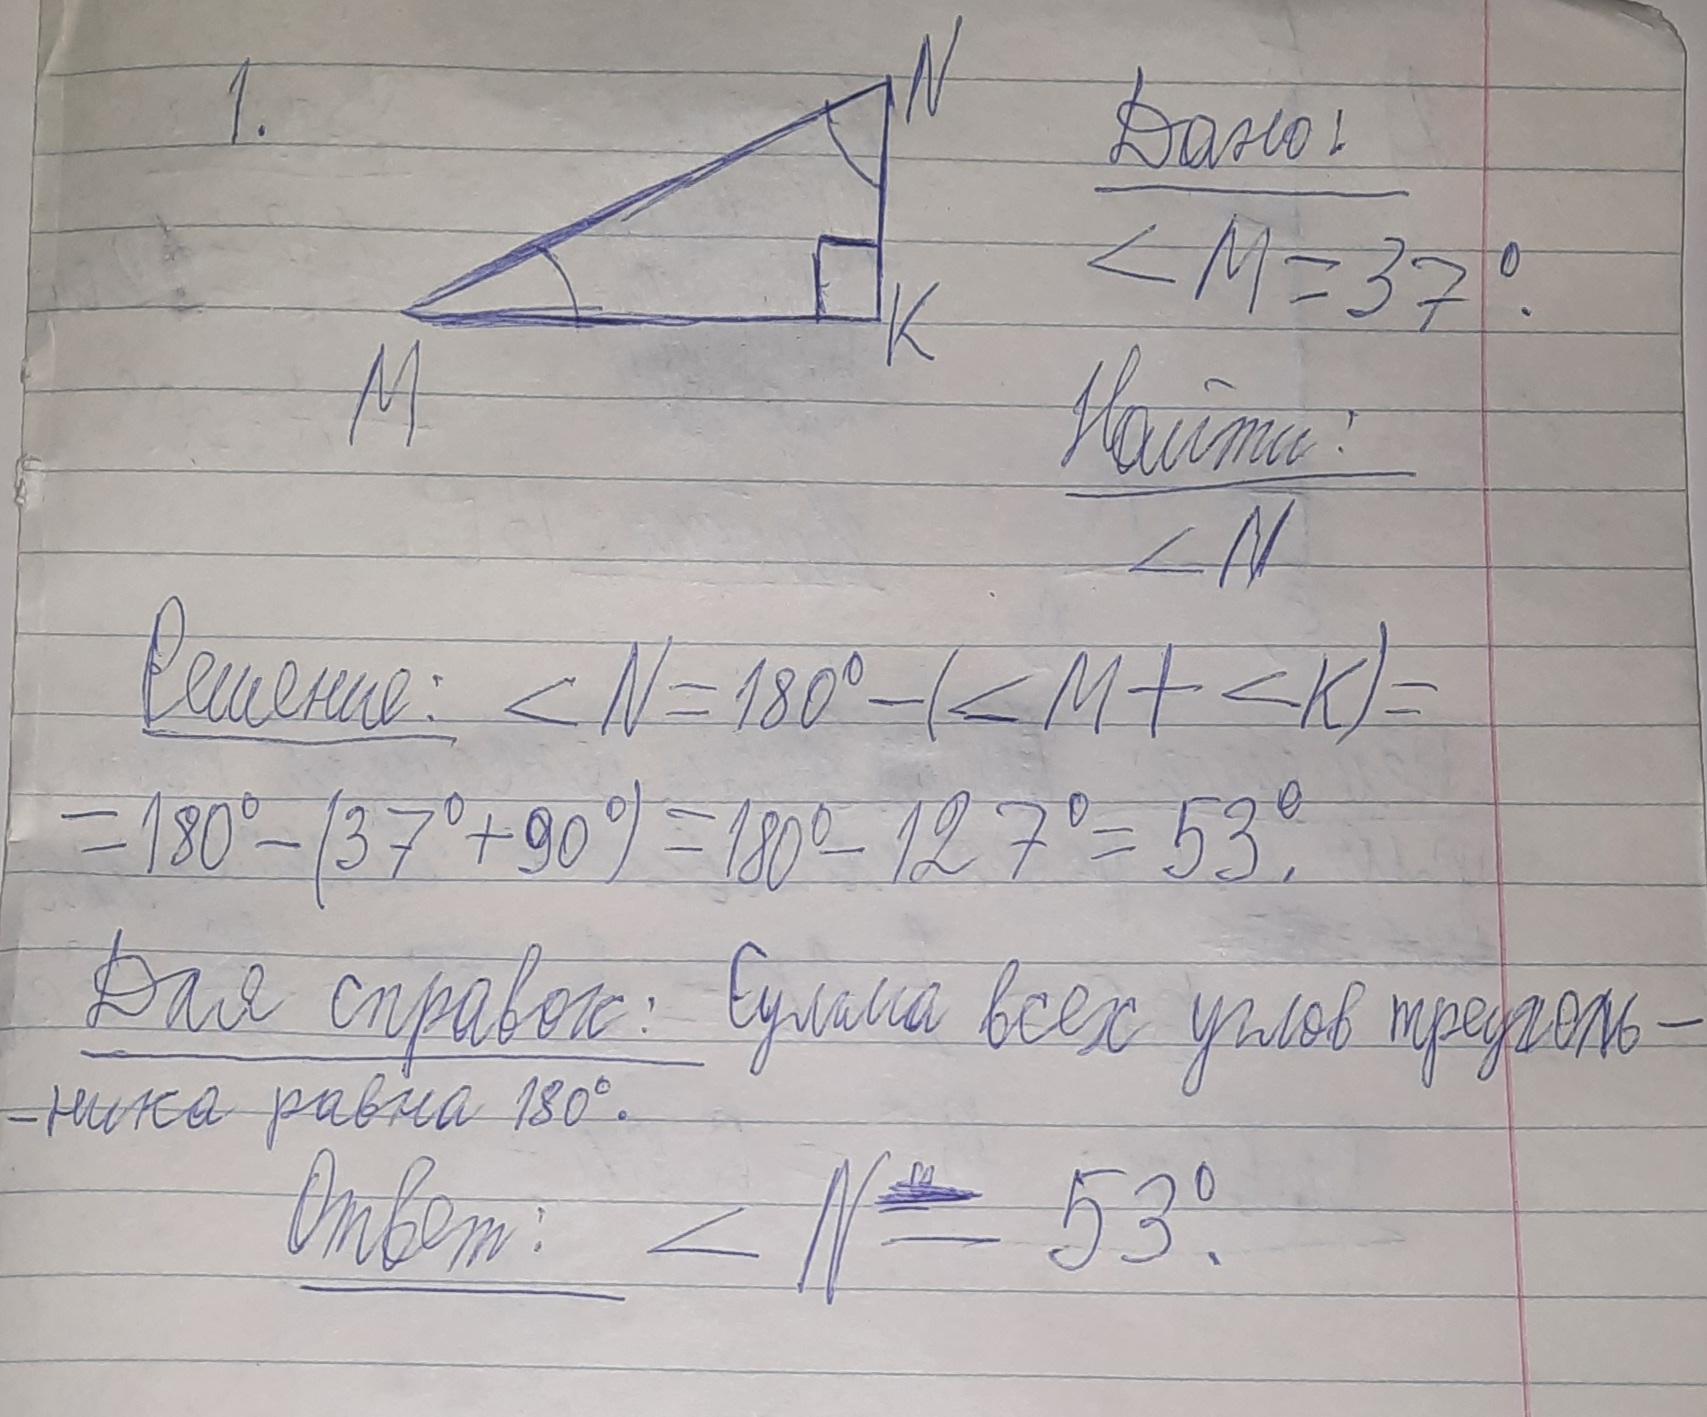 1.
N
Дано:
<M=37°.
K
M
Найти:
<N
Решение: <N=180°-(<M+<K)=
=180°-(37°+90°)=180°-127°=53°.
Для справок: Сумма всех углов треуголь-
-ника равна 180°.
Ответ: <N=53°.